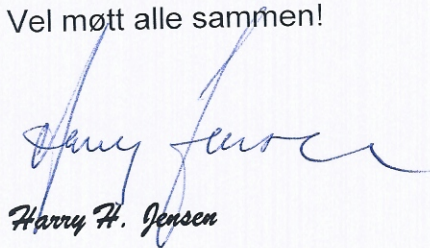 Vel møtt alle sammen!
Harry Jensen
Harry H. Jensen